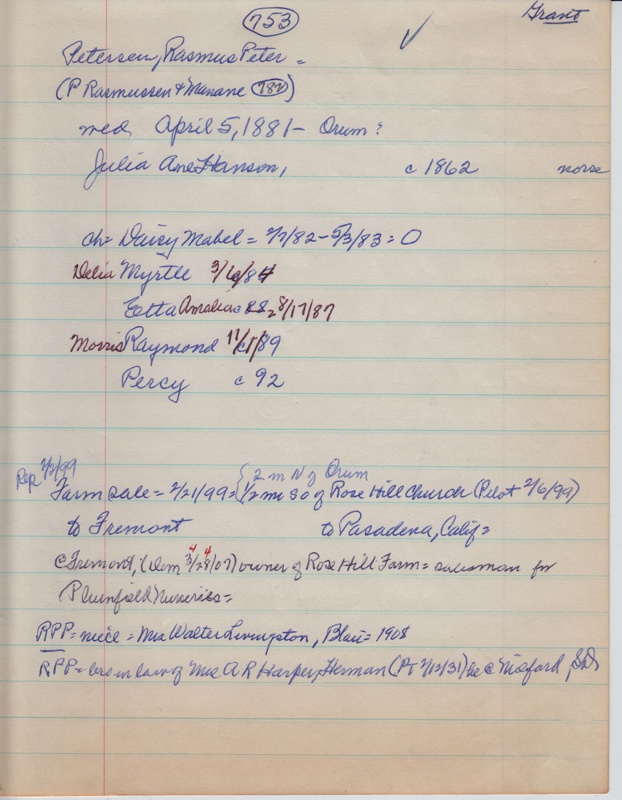 753
Grant
Petersen, Rasmus Peter =
(P Rasmussen & Manane 782)
med, April 5, 1881 - Orum?
Julia Ane Hanson, c 1862 norse
ch = Daisy Mabel = 2/7/82 - 5/3/83 = 0
Delia Myrtle 3/6/84
Etta Amalia c 88 = 8/17/87
Morris Raymond 11/1/89
Percy c 92
Rep 2/2/99
2 m N of Orum
Farm sale = 2/21/99 = 1/2 mi So of Rose Hill Church (Pilot 2/6/99)
to Fremont to Pasadena, Calif =
c Fremont, (Dem 3/28/07) owner of Rose Hill Farm = salesman for
Plumfield Nurseries =
RPP = niece = Mrs Walter Livingston, Blair = 1908
RPP = bro in law of Mrs A R Harper, Herman (PT 2/12/31) he c Midford, SD